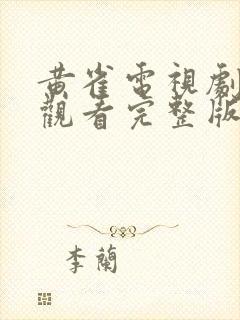 黃雀電視劇
觀看完整版
李蘭